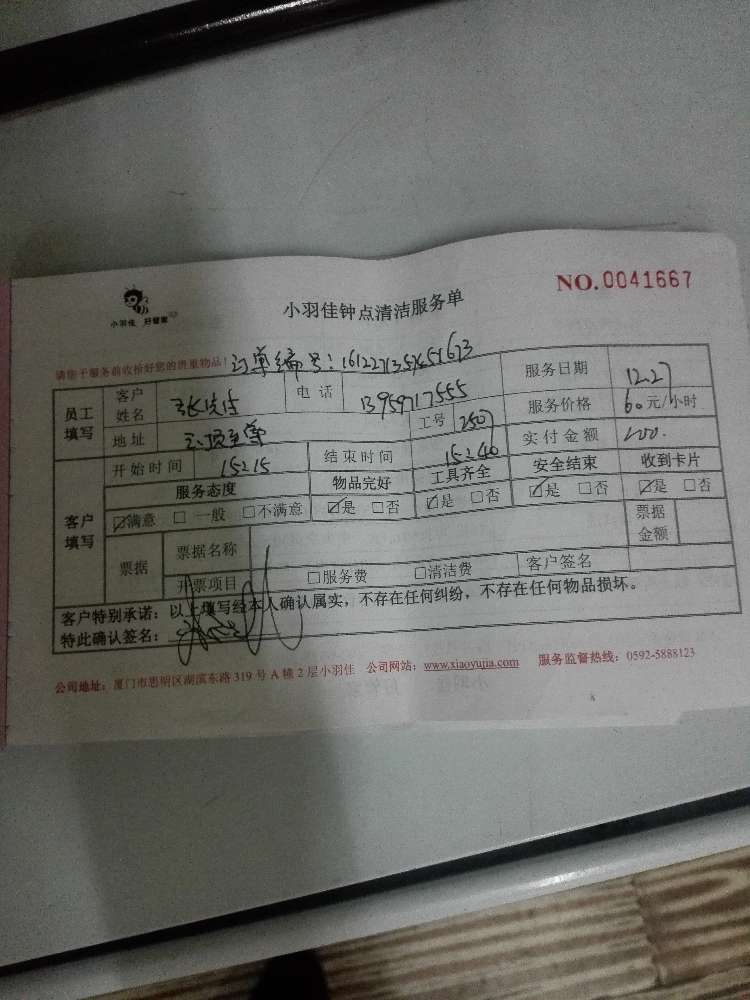 NO.0041667
小羽佳 好管家
小羽佳钟点清洁服务单
请您于服务前收拾好您的贵重物品！ 订单编号：
员工填写 客户姓名 张先生 电话 13959717555 服务日期 12.27
地址 工号 2507 服务价格 60元/小时
开始时间 15:15 结束时间 15:40 实付金额 200.
客户填写 服务态度 物品完好 工具齐全 安全结束 收到卡片
☑满意 □一般 □不满意 ☑是 □否 ☑是 □否 ☑是 □否 ☑是 □否
票据 票据名称 票据金额
开票项目 □服务费 □清洁费 客户签名
客户特别承诺：以上填写经本人确认属实，不存在任何纠纷，不存在任何物品损坏。
特此确认签名：
公司地址：厦门市思明区湖滨东路319号A幢2层小羽佳 公司网站：www.xiaoyujia.com 服务监督热线：0592-5888123